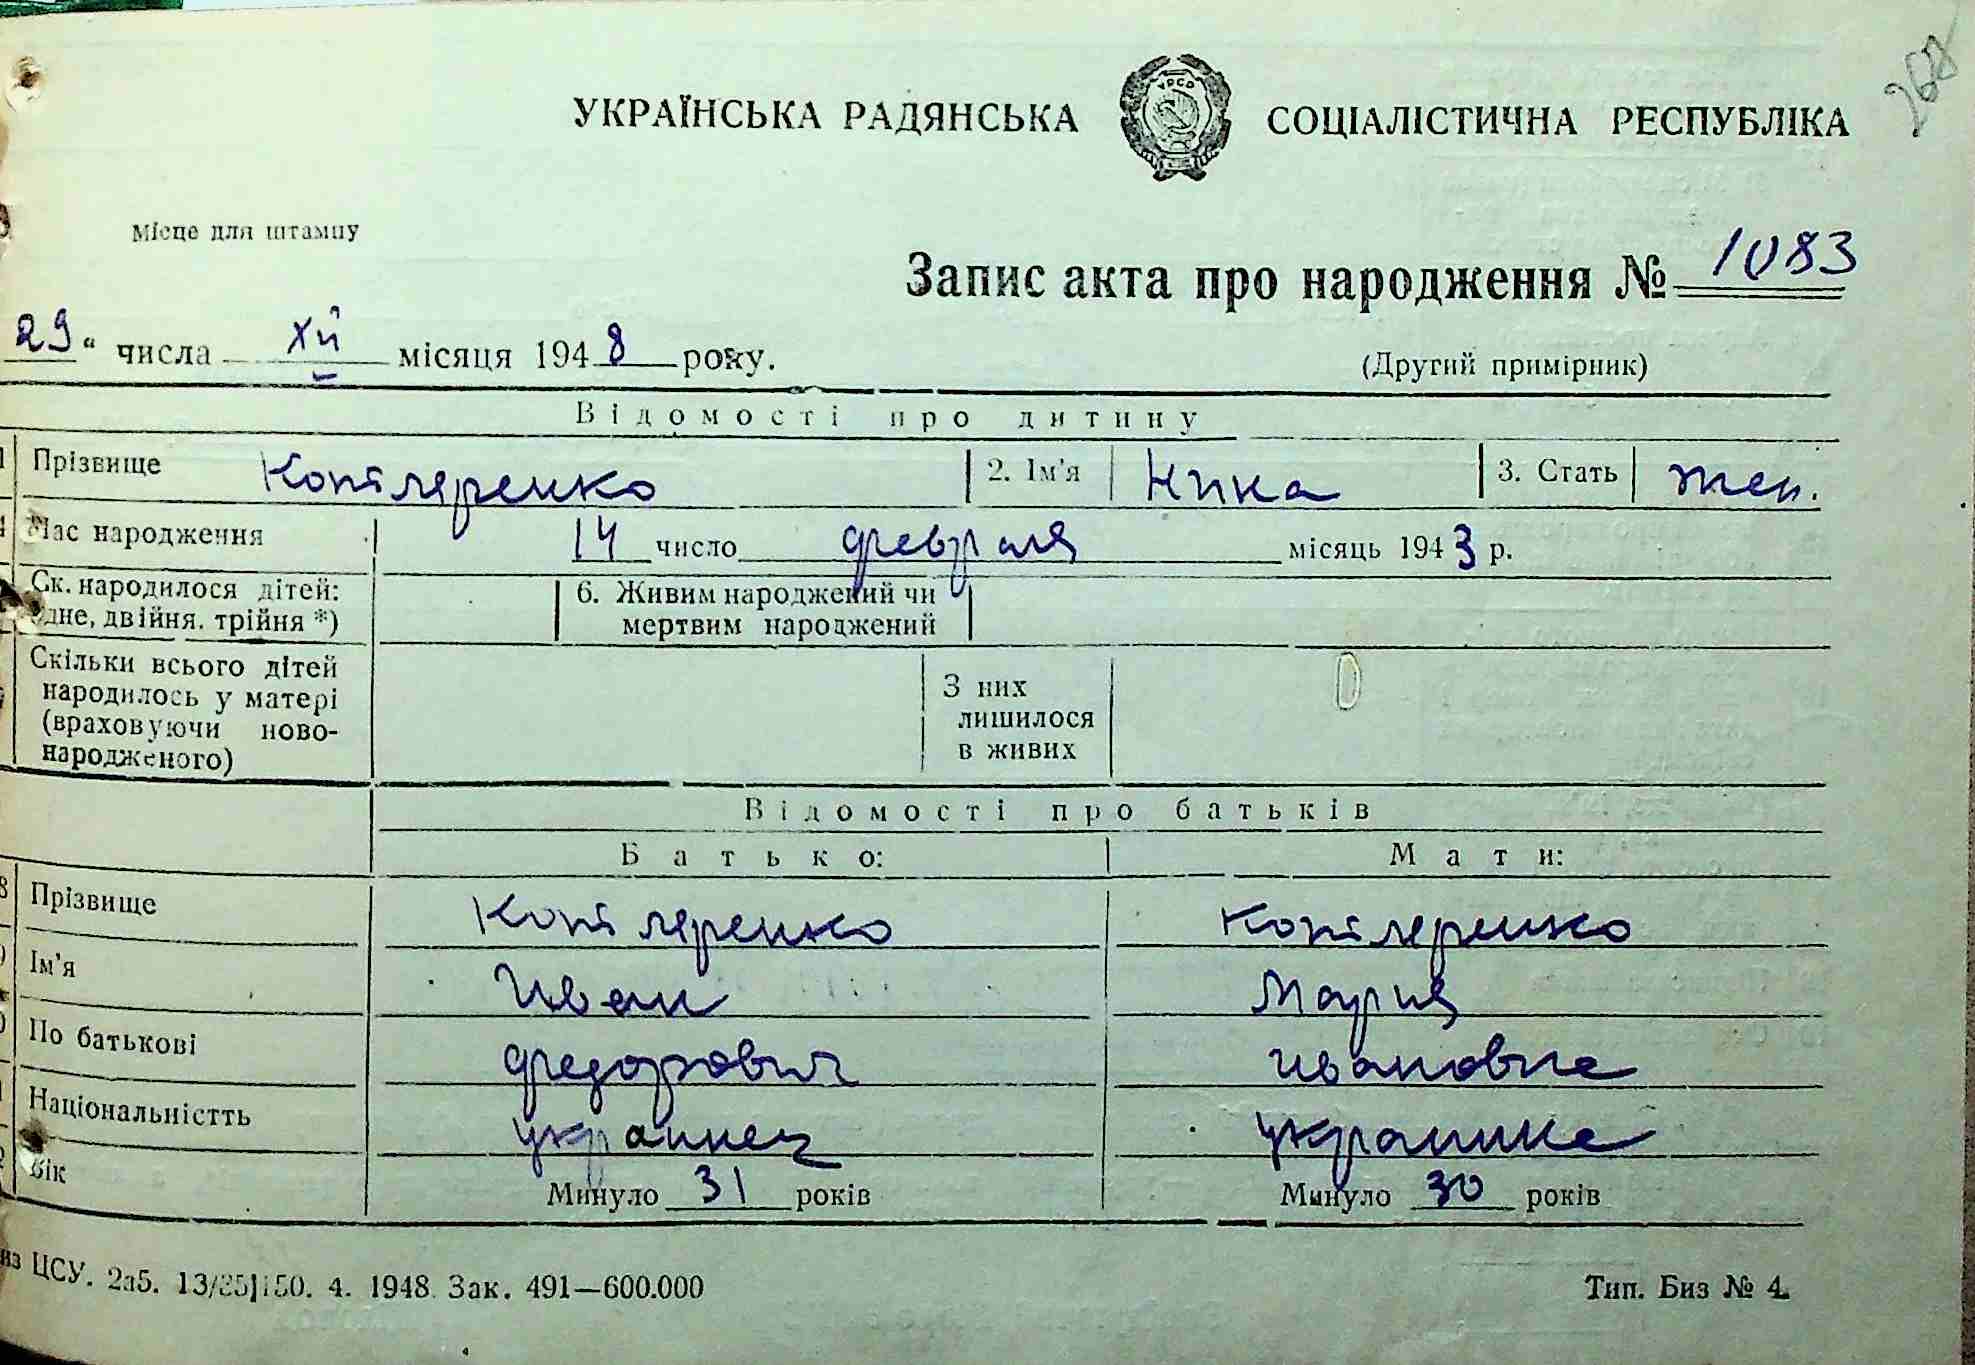 268
УКРАЇНСЬКА РАДЯНСЬКА СОЦІАЛІСТИЧНА РЕСПУБЛІКА
УРСР
Місце для штампу
Запис акта про народження № 1083
29 “ числа XII місяця 1948 року.
(Другий примірник)
Відомості про дитину
1 Прізвище Котляренко 2. Ім'я Нина 3. Стать жен.
4 Час народження 14 число февраля місяць 1943 р.
Ск. народилося дітей: 6. Живим народжений чи
одне, двійня. трійня *) мертвим народжений
Скільки всього дітей З них
народилось у матері лишилося
(враховуючи ново- в живих
народженого)
Відомості про батьків
Батько: Мати:
8 Прізвище Котляренко Котляренко
Ім'я Иван Мария
По батькові Федорович Ивановна
Національністть украинец украинка
Вік Минуло 31 років Минуло 30 років
из ЦСУ. 2а5. 13/35 150. 4. 1948. Зак. 491—600.000 Тип. Биз № 4.